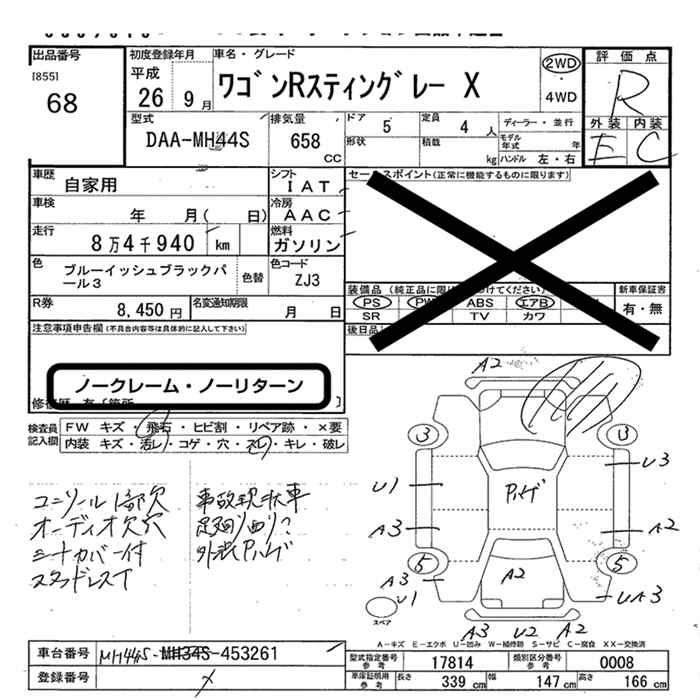 出品番号
[855]
68
初度登録年月
平成
26 9月
車名・グレード
ワゴンRスティングレー X
2WD
・
4WD
評価点
R
外装 内装
E C
型式
DAA-MH44S
排気量
658
CC
ドア
5
定員
4 人
形状
積載
kg
ディーラー・並行
モデル年式 年
ハンドル 左・右
車歴
自家用
シフト
IAT
車検
年 月( 日)
冷房
AAC
走行
8万4千940 km
燃料
ガソリン
色
ブルーイッシュブラックパール3
色替
色コード
ZJ3
R券
8,450 円
名変通知期限
月 日
セールスポイント(正常に機能するものに限ります)
装備品
PS ABS エアB
SR TV カワ
新車保証書
有・無
後日品
注意事項申告欄(不具合内容等は具体的に記入して下さい)
ノークレーム・ノーリターン
検査員記入欄
FW キズ・飛石・ヒビ割・リペア跡・×要
内装 キズ・汚レ・コゲ・穴・スレ・キレ・破レ
コンソール1部欠
オーディオ欠穴
シートカバー付
スタッドレスT
事故現状車
足廻り曲り?
A2
3 3
U1
U3
A3
A2
5 5
A2
A3
U1
UA3
スペア
A3 U2 A2
A－キズ E－エクボ U－凹み W－補修跡 S－サビ C－腐食 XX－交換済
車台番号
MH44S-MH34S-453261
登録番号
型式指定番号参考
17814
類別区分番号参考
0008
車庫証明用参考
長さ 339 cm
幅 147 cm
高さ 166 cm